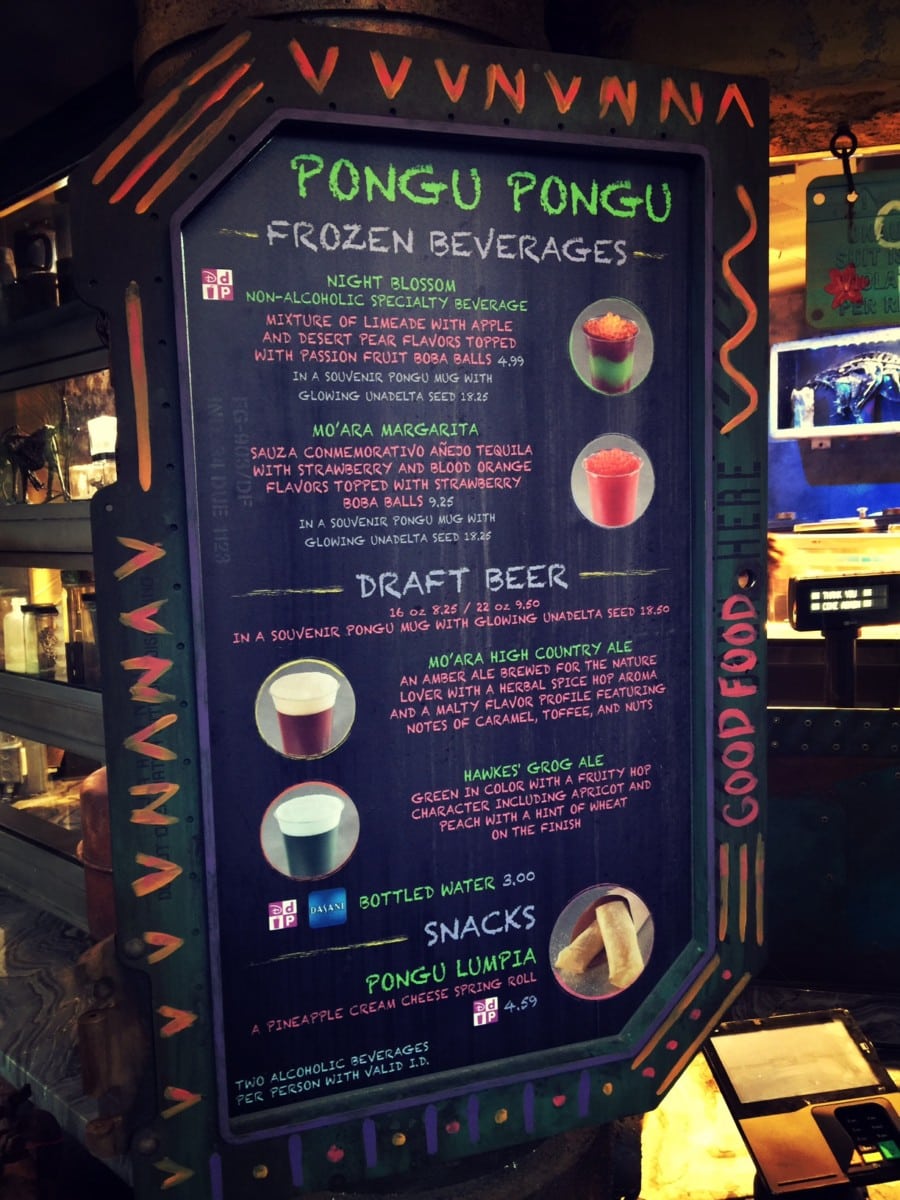 PONGU PONGU
FROZEN BEVERAGES
NIGHT BLOSSOM
NON-ALCOHOLIC SPECIALTY BEVERAGE
MIXTURE OF LIMEADE WITH APPLE
AND DESERT PEAR FLAVORS TOPPED
WITH PASSION FRUIT BOBA BALLS 4.99
IN A SOUVENIR PONGU MUG WITH
GLOWING UNADELTA SEED 18.25
MO'ARA MARGARITA
SAUZA CONMEMORATIVO AÑEJO TEQUILA
WITH STRAWBERRY AND BLOOD ORANGE
FLAVORS TOPPED WITH STRAWBERRY
BOBA BALLS 9.25
IN A SOUVENIR PONGU MUG WITH
GLOWING UNADELTA SEED 18.25
DRAFT BEER
16 OZ 8.25 / 22 OZ 9.50
IN A SOUVENIR PONGU MUG WITH GLOWING UNADELTA SEED 18.50
MO'ARA HIGH COUNTRY ALE
AN AMBER ALE BREWED FOR THE NATURE
LOVER WITH A HERBAL SPICE HOP AROMA
AND A MALTY FLAVOR PROFILE FEATURING
NOTES OF CARAMEL, TOFFEE, AND NUTS
HAWKES' GROG ALE
GREEN IN COLOR WITH A FRUITY HOP
CHARACTER INCLUDING APRICOT AND
PEACH WITH A HINT OF WHEAT
ON THE FINISH
DASANI
BOTTLED WATER 3.00
SNACKS
PONGU LUMPIA
A PINEAPPLE CREAM CHEESE SPRING ROLL
4.59
TWO ALCOHOLIC BEVERAGES
PER PERSON WITH VALID I.D.
GOOD FOOD HERE
THANK YOU
COME AGAIN
SUIT
PER